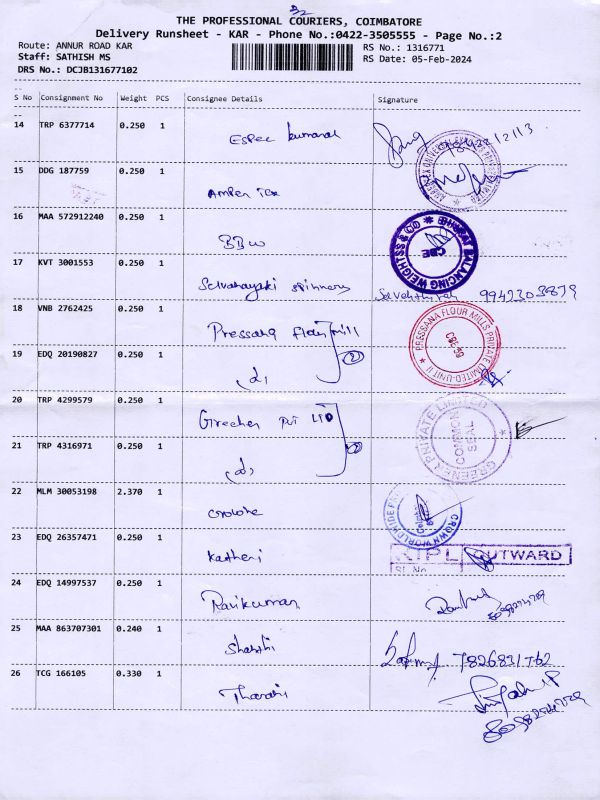 THE PROFESSIONAL COURIERS, COIMBATORE
Delivery Runsheet - KAR - Phone No.:0422-3505555 - Page No.:2
Route: ANNUR ROAD KAR
RS No.: 1316771
Staff: SATHISH MS
RS Date: 05-Feb-2024
DRS No.: DCJB131677102
S No Consignment No Weight PCS Consignee Details Signature
14 TRP 6377714 0.250 1
15 DDG 187759 0.250 1
16 MAA 572912240 0.250 1 BBW
BHARAT BALANCING WEIGHTSS & CO CBE
17 KVT 3001553 0.250 1 9942303879
18 VNB 2762425 0.250 1 Pressana Flour mill
PRESSANA FLOUR MILLS PRIVATE LIMITED-UNIT II
19 EDQ 20190827 0.250 1
20 TRP 4299579 0.250 1 Pvt LTD
GREENER PRIVATE LIMITED COMMON SEAL
21 TRP 4316971 0.250 1
22 MLM 30053198 2.370 1
23 EDQ 26357471 0.250 1 Katheri
OUTWARD
24 EDQ 14997537 0.250 1 Ravikumar
25 MAA 863707301 0.240 1 Sharthi
26 TCG 166105 0.330 1 Tharani